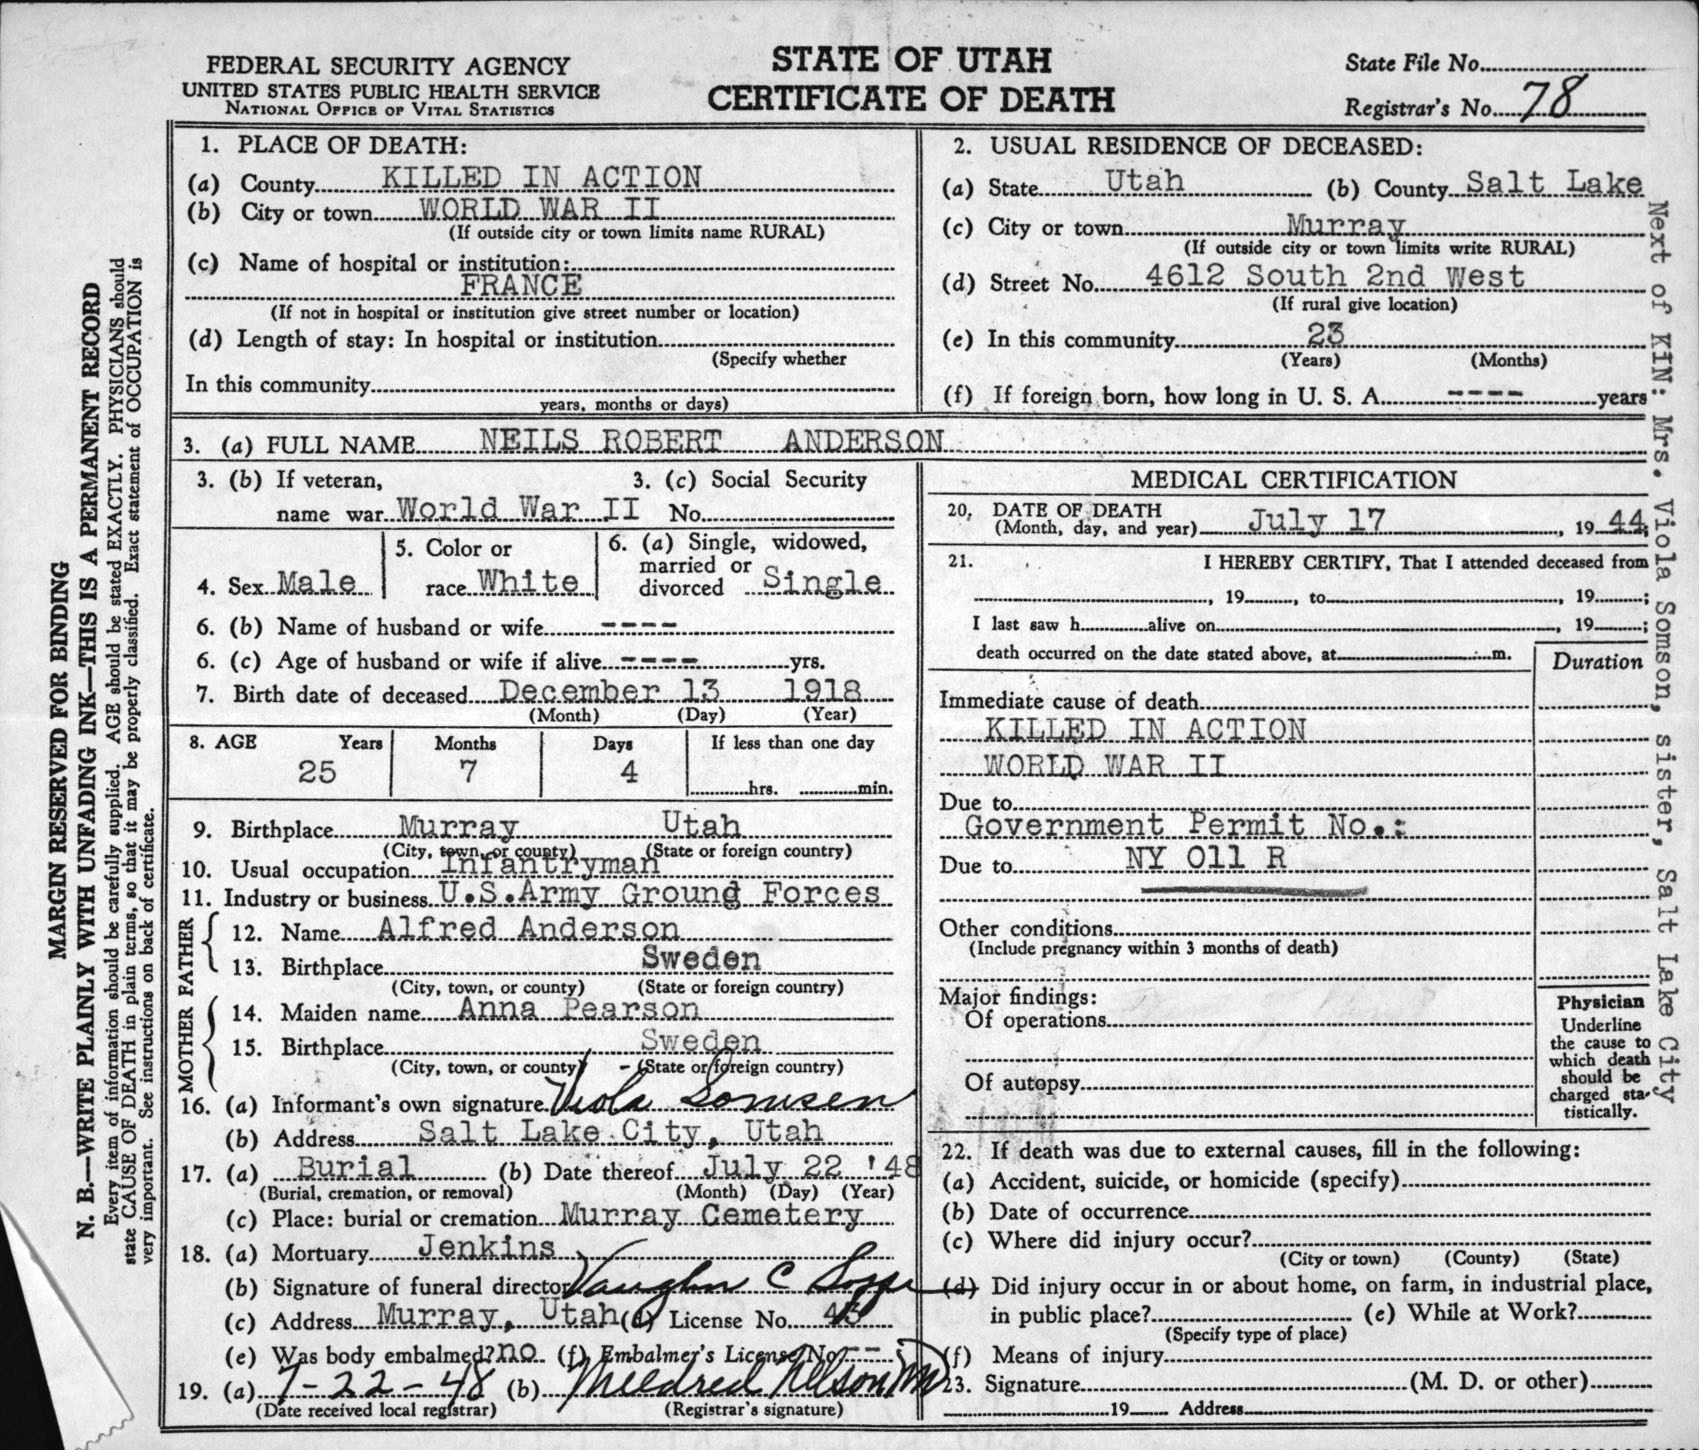 FEDERAL SECURITY AGENCY
UNITED STATES PUBLIC HEALTH SERVICE
NATIONAL OFFICE OF VITAL STATISTICS
STATE OF UTAH
CERTIFICATE OF DEATH
State File No.
Registrar's No. 78
MARGIN RESERVED FOR BINDING
N. B.—WRITE PLAINLY WITH UNFADING INK—THIS IS A PERMANENT RECORD
Every item of information should be carefully supplied. AGE should be stated EXACTLY. PHYSICIANS should
state CAUSE OF DEATH in plain terms, so that it may be properly classified. Exact statement of OCCUPATION is
very important. See instructions on back of certificate.
1. PLACE OF DEATH:
(a) County KILLED IN ACTION
(b) City or town WORLD WAR II
(If outside city or town limits name RURAL)
(c) Name of hospital or institution:
FRANCE
(If not in hospital or institution give street number or location)
(d) Length of stay: In hospital or institution
(Specify whether
In this community
years, months or days)
2. USUAL RESIDENCE OF DECEASED:
(a) State Utah (b) County Salt Lake
(c) City or town Murray
(If outside city or town limits write RURAL)
(d) Street No. 4612 South 2nd West
(If rural give location)
(e) In this community 23
(Years) (Months)
(f) If foreign born, how long in U. S. A. ---- years
3. (a) FULL NAME NEILS ROBERT ANDERSON
3. (b) If veteran, 3. (c) Social Security
name war World War II No.
4. Sex Male
5. Color or
race White
6. (a) Single, widowed,
married or
divorced Single
6. (b) Name of husband or wife ----
6. (c) Age of husband or wife if alive ---- yrs.
7. Birth date of deceased December 13 1918
(Month) (Day) (Year)
8. AGE Years Months Days If less than one day
25 7 4 hrs. min.
9. Birthplace Murray Utah
(City, town, or county) (State or foreign country)
10. Usual occupation Infantryman
11. Industry or business U.S.Army Ground Forces
FATHER
12. Name Alfred Anderson
13. Birthplace Sweden
(City, town, or county) (State or foreign country)
MOTHER
14. Maiden name Anna Pearson
15. Birthplace Sweden
(City, town, or county) (State or foreign country)
16. (a) Informant's own signature Viola Somsen
(b) Address Salt Lake City, Utah
17. (a) Burial (b) Date thereof July 22 '48
(Burial, cremation, or removal) (Month) (Day) (Year)
(c) Place: burial or cremation Murray Cemetery
18. (a) Mortuary Jenkins
(b) Signature of funeral director Vaughn C
(c) Address Murray, Utah (d) License No.
(e) Was body embalmed? no (f) Embalmer's License No. --
19. (a) 7-22-48 (b) Mildred Nelson MD
(Date received local registrar) (Registrar's signature)
MEDICAL CERTIFICATION
20. DATE OF DEATH
(Month, day, and year) July 17, 1944
21. I HEREBY CERTIFY, That I attended deceased from
, 19 , to , 19 ;
I last saw h alive on , 19 ;
death occurred on the date stated above, at m.
Duration
Immediate cause of death
KILLED IN ACTION
WORLD WAR II
Due to
Government Permit No.:
Due to NY Oll R
Other conditions
(Include pregnancy within 3 months of death)
Major findings:
Of operations
Of autopsy
Physician
Underline
the cause to
which death
should be
charged sta-
tistically.
22. If death was due to external causes, fill in the following:
(a) Accident, suicide, or homicide (specify)
(b) Date of occurrence
(c) Where did injury occur?
(City or town) (County) (State)
(d) Did injury occur in or about home, on farm, in industrial place,
in public place? (e) While at Work?
(Specify type of place)
(f) Means of injury
23. Signature (M. D. or other)
19 Address
Next of KiN: Mrs. Viola Somson, sister, Salt Lake City